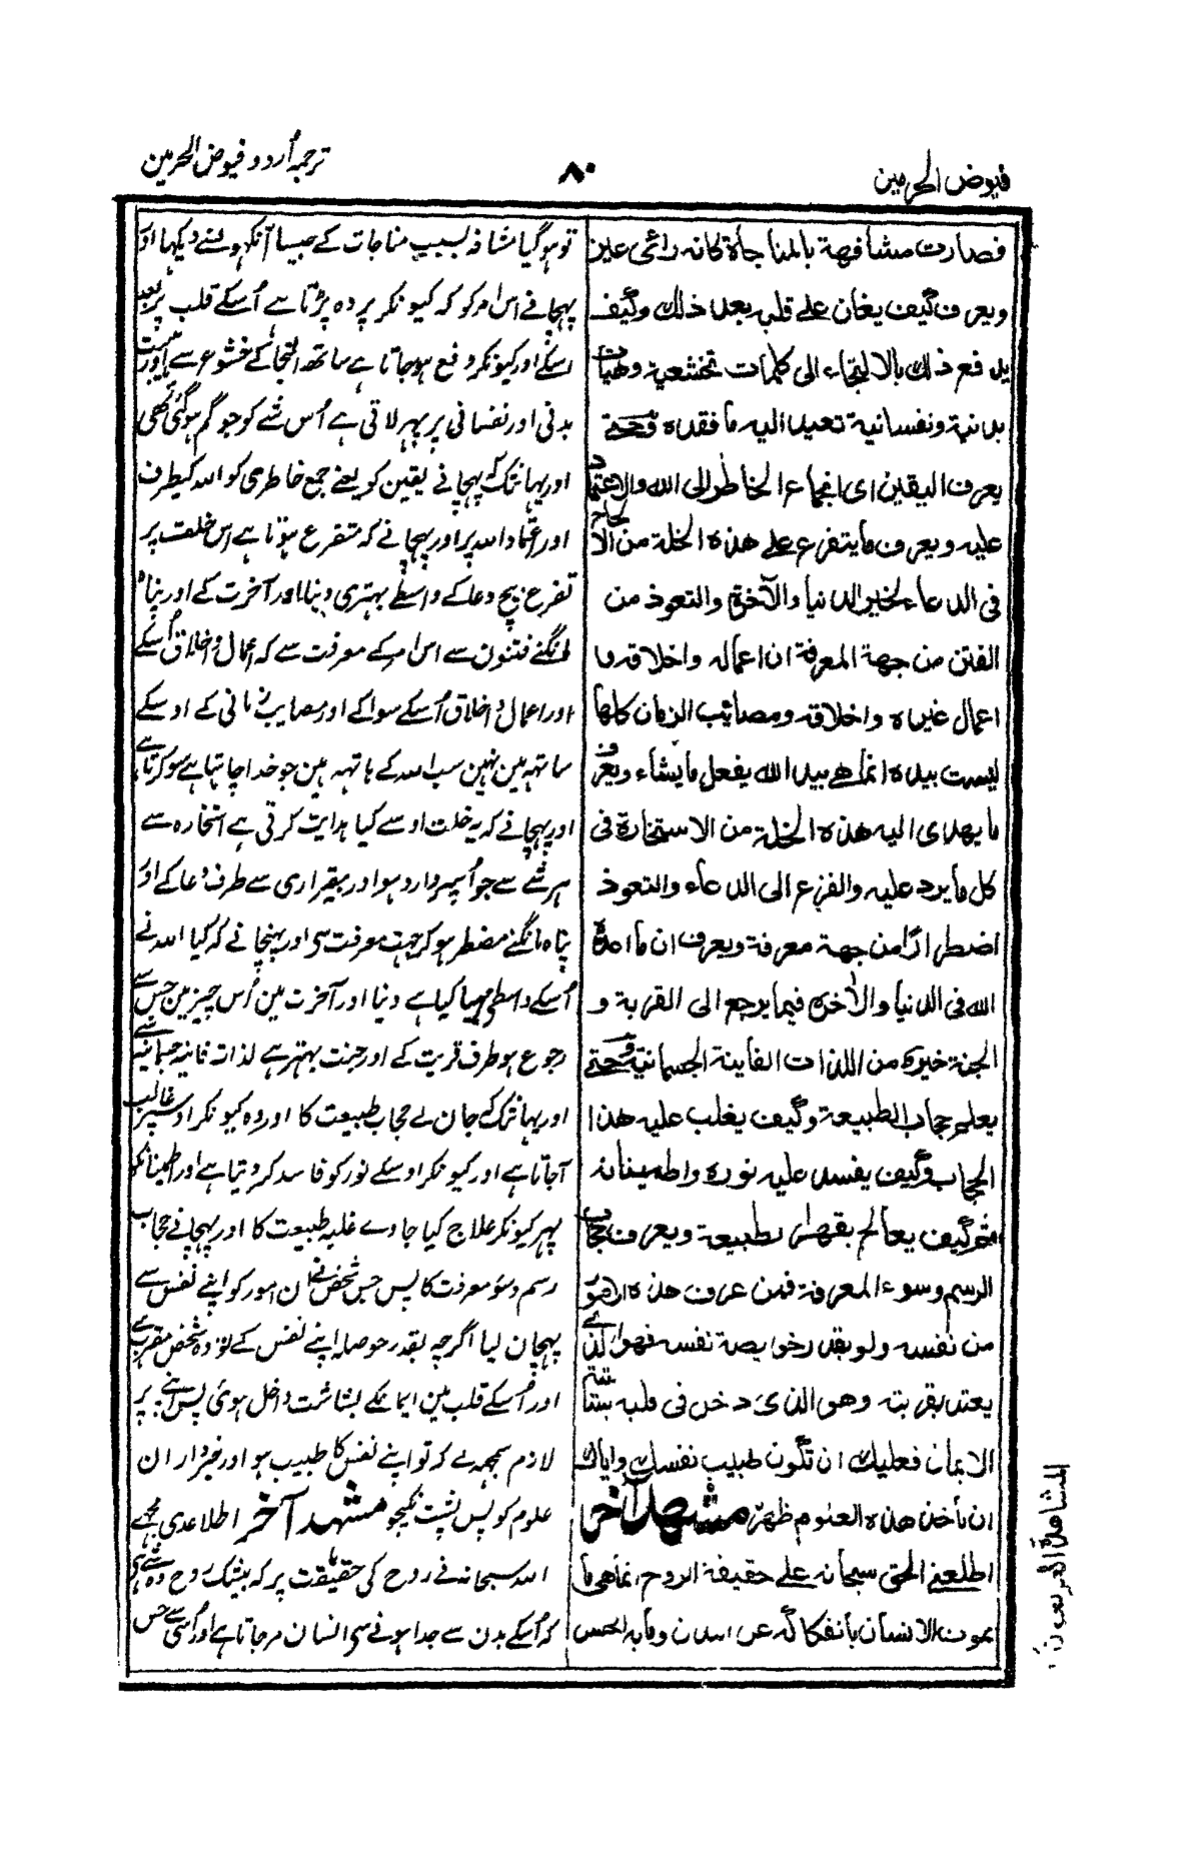 فیوض الحرمین
۸۰
ترجمۂ اُردو فیوض الحرمین
فصارت مشافهة بالمناجاة كانه رائى عين
ويعرف كيف يغان على قلبه بعد ذلك وكيف
يدفع ذلك بالالتجاء الى كلمات تخشعية وهيات
بدنية ونفسانية تعيد اليه ما فقده وحتى
يعرف اليقين اى انجماع الخاطر الى الله والاعتماد
عليه ويعرف ما يتفرع على هذه الخلة من الالحاح
فى الدعاء لخير الدنيا والآخرة والتعوذ من
الفتن من جهة المعرفة ان اعماله واخلاقه وما
اعمال غيره واخلاقه ومصائب الزمان كلها
ليست بيده انما هى بيد الله يفعل ما يشاء ويعرف
ما يهدى اليه هذه الخلة من الاستخارة فى
كل ما يرد عليه والفزع الى الدعاء والتعوذ
اضطرارًا من جهة معرفة ويعرف ان ما اعده
الله فى الدنيا والآخرة فيما يرجع الى القربة و
الجنة خير من اللذات الفانية الجسمانية وحتى
يعلم حجاب الطبيعة وكيف يغلب عليه هذا
الحجاب وكيف يفسد عليه نوره واطمينانه
ثم كيف يعالج بقهر الطبيعة ويعرف حجاب
الرسم وسوء المعرفة فمن عرف هذه الامور
من نفسه ولو بقدر خويصة نفسه فهو الذى
يعتد بقربته وهو الذى دخل فى قلبه بشاشة
الايمان فعليك ان تكون طبيب نفسك واياك
ان تأخذ هذه العلوم ظهريًا مشهد آخر
اطلعنى الحق سبحانه على حقيقة الروح انما هى ما
يموت الانسان بانفكاكه عن البدن وما به الحس
تو ہوگیا مشافہ بسبب مناجات کے جیسا آنکہونسے دیکہا اور
پہچانے اس امر کو کہ کیونکر پردہ پڑتا ہے اُسکے قلب پر بعد
اسکے اور کیونکر دفع ہوجاتا ہے ساتھ التجا کے خشوع سے اور ہیئت
بدنی اور نفسانی پر پہر لاتی ہے اُس شے کو جو گم ہوگئی تھی
اور یہانتک کہ پہچانے یقین کو یعنے جمع خاطری کو اللہ کیطرف
اور اعتماد اللہ پر اور پہچانے کہ متفرع ہوتا ہے اس خلت پر
تفرع بیچ دعا کے واسطے بہتری دنیا اور آخرت کے اور پناہ
مانگنے فتنون سے اس امر کے معرفت سے کہ اعمال و اخلاق اُسکے
اور اعمال و اخلاق اُسکے سوا کے اور مصایب زمانی کے اوسکے
ساتہہ مین نہین سب اللہ کے ہاتہہ مین جو خدا چاہتا ہے سو کرتا ہے
اور پہچانے کہ یہ خلت اوسے کیا ہدایت کرتی ہے استخارہ سے
ہر شے سے جو اُسپر وارد ہو اور بیقراری سے طرف دعا کے اور
پناہ مانگنے مضطر ہو کر جہت معرفت سے اور پہنچانے کہ کیا اللہ نے
اُسکے واسطے مہیا کیا ہے دنیا اور آخرت مین اُس چیز مین جس سے
رجوع ہو طرف قربت کے اور جنت بہتر ہے لذات فانیہ جسمانیہ سے
اور یہانتک کہ جان لے حجاب طبیعت کا اور وہ کیونکر اوسپر غالب
آجاتا ہے اور کیونکر اوسکے نور کو فاسد کردیتا ہے اور اطمینانکو
پہر کیونکر علاج کیا جاوے غلبہ طبیعت کا اور پہچانے حجاب
رسم و سؤ معرفت کا پس جس شخص نے ان امور کو اپنے نفس سے
پہچان لیا اگرچہ بقدر حوصلہ اپنے نفس کے تو وہ شخص مقرب ہے
اور اُسکے قلب مین ایمانکے بشاشت داخل ہوئی پس اپنے پر
لازم سمجہہ لے کہ تو اپنے نفس کا طبیب ہو اور خبردار ان
علوم کو پس پشت نکیجو مشہد آخر اطلاعدی مجہے
اللہ سبحانہ نے روح کی حقیقت پر کہ بیشک روح وہ شے ہی
کہ اُسکے بدن سے جدا ہونے سے انسان مرجاتا ہے اور اُسی سے حس